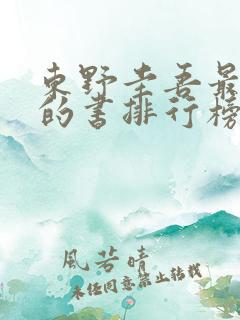 东野圭吾最
的书排行榜
风若晴
未经同意禁止转载